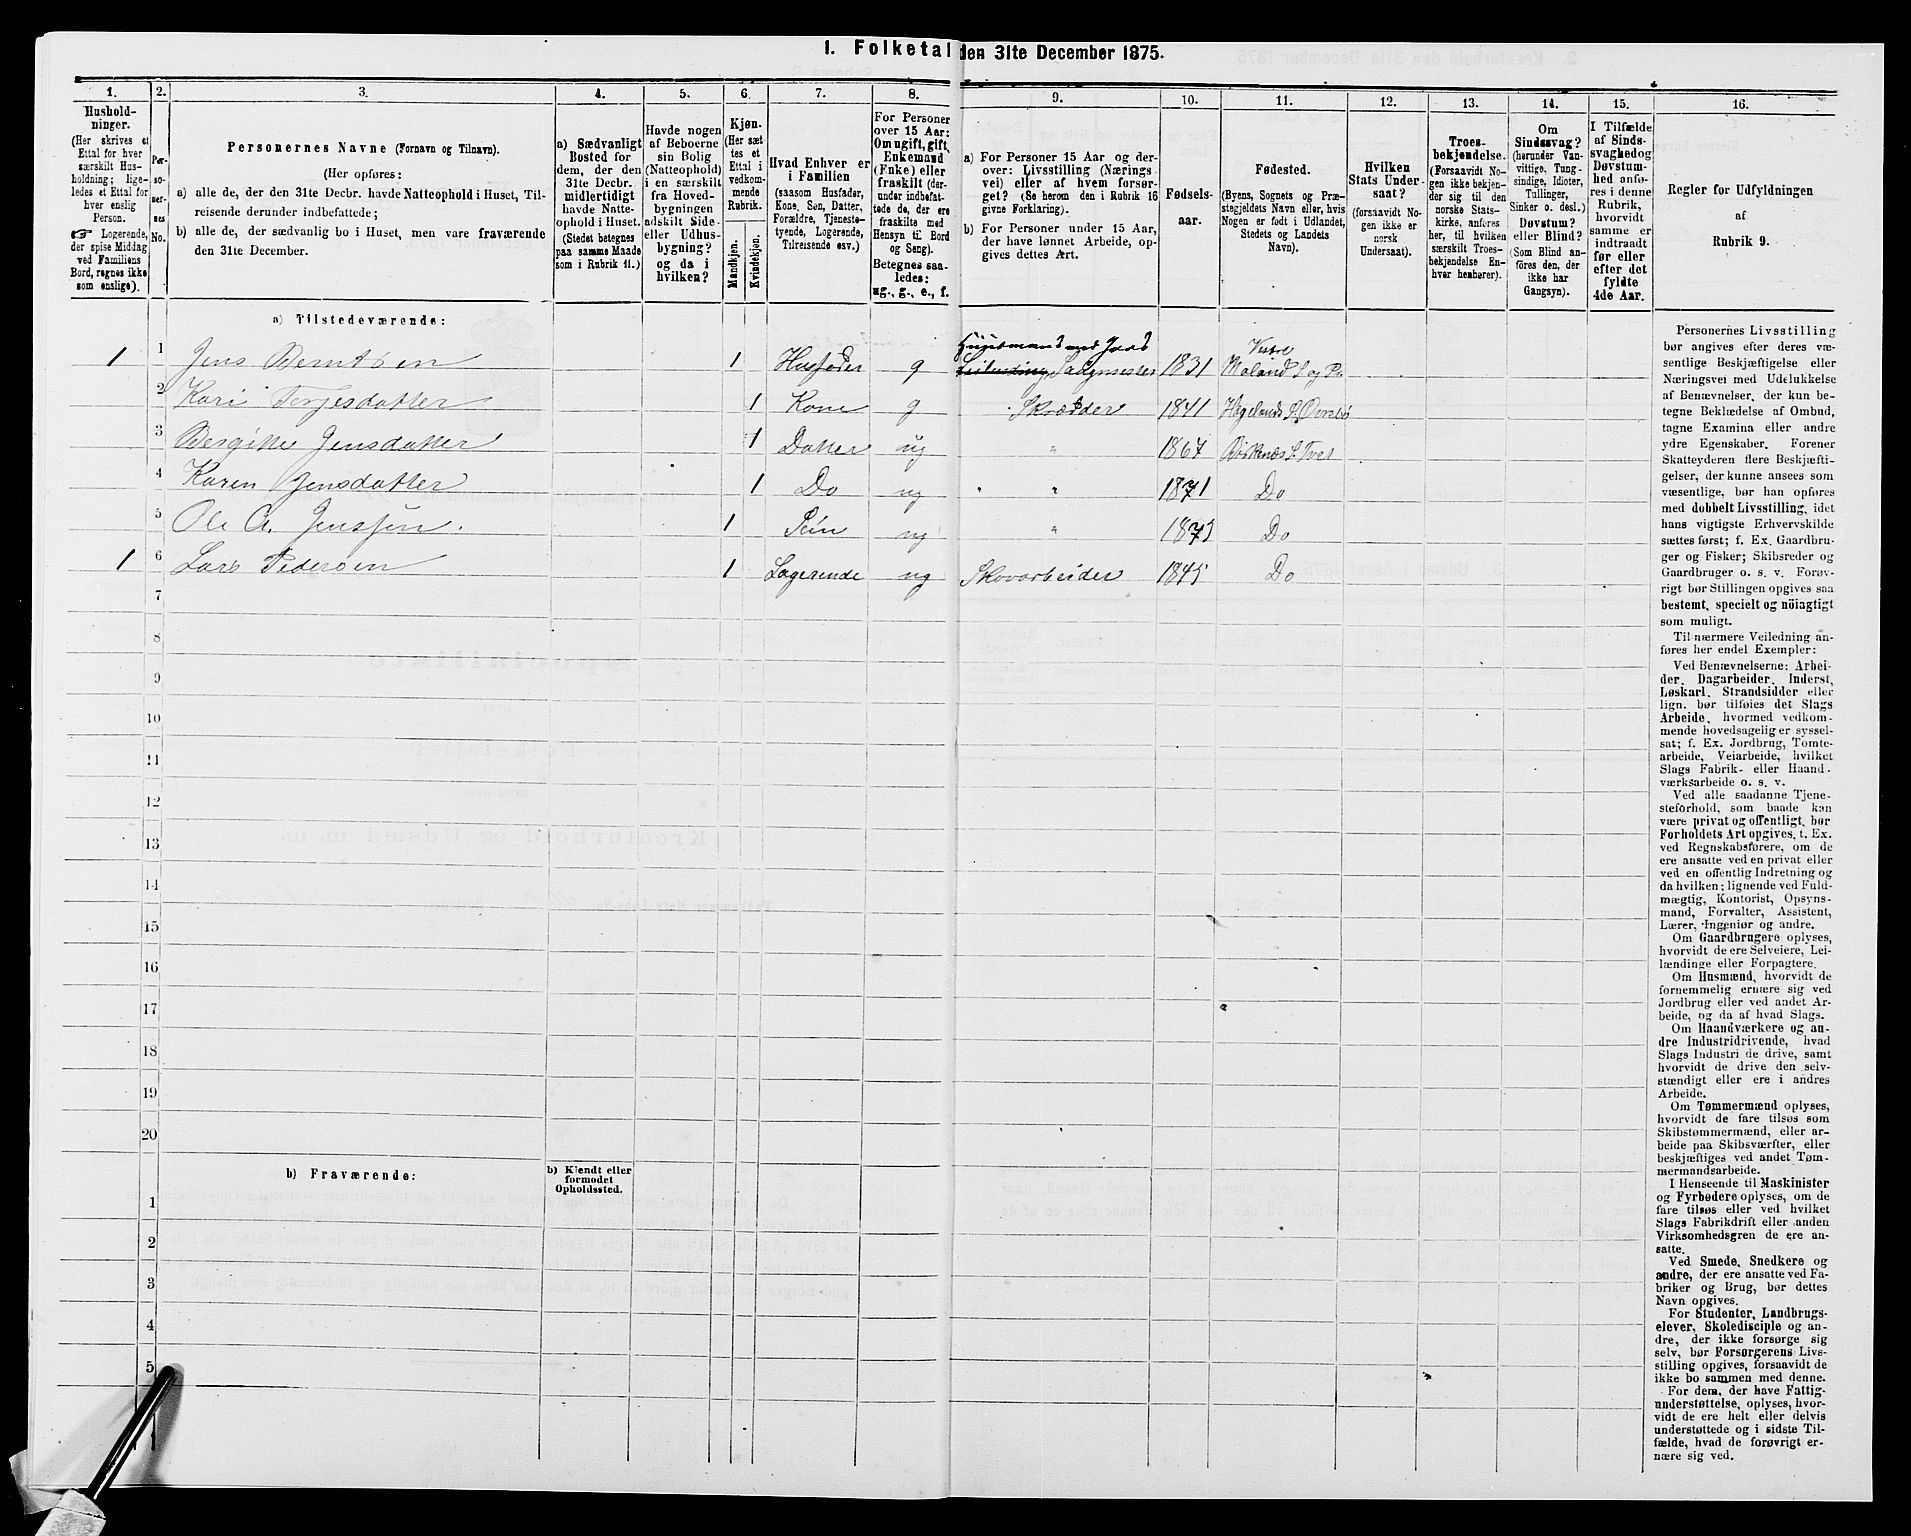 1. Folketal den 31te December 1875.
1. 2. 3. 4. 5. 6. 7. 8. 9. 10. 11. 12. 13. 14. 15. 16.
Hushold-
ninger.
(Her skrives et
Ettal for hver
særskilt Hus-
holdning; lige-
ledes et Ettal for
hver enslig
Person.
☞ Logerende,
der spise Middag
ved Familiens
Bord, regnes ikke
som enslige).
Per-
so-
ner-
nes
No.
Personernes Navne (Fornavn og Tilnavn).
(Her opføres:
a) alle de, der den 31te Decbr. havde Natteophold i Huset, Til-
reisende derunder indbefattede;
b) alle de, der sædvanlig bo i Huset, men vare fraværende
den 31te December.
a) Sædvanligt
Bosted for
dem, der den
31te Decbr.
midlertidigt
havde Natte-
ophold i Huset.
(Stedet betegnes
paa samme Maade
som i Rubrik 11.)
Havde nogen
af Beboerne
sin Bolig
(Natteophold)
i en særskilt
fra Hoved-
bygningen
adskilt Side-
eller Udhus-
bygning?
og da i
hvilken?
Kjøn.
(Her sæt
tes et
Ettal i
vedkom-
mende
Rubrik.
Mandkjøn.
Kvindekjøn.
Hvad Enhver er
i Familien
(saasom Husfader,
Kone, Søn, Datter,
Forældre, Tjeneste-
tyende, Logerende,
Tilreisende osv.)
For Personer
over 15 Aar:
Om ugift, gift,
Enkemand
(Enke) eller
fraskilt (der-
under indbefat-
tede de, der ere
fraskilte med
Hensyn til Bord
og Seng).
Betegnes saa-
ledes:
ug., g., e., f.
a) For Personer 15 Aar og der-
over: Livsstilling (Nærings-
vei) eller af hvem forsør-
get? (Se herom den i Rubrik 16
givne Forklaring).
b) For Personer under 15 Aar,
der have lønnet Arbeide, op-
gives dettes Art.
Fødsels-
aar.
Fødested.
(Byens, Sognets og Præ-
stegjeldets Navn eller, hvis
Nogen er født i Udlandet,
Stedets og Landets
Navn).
Hvilken
Stats Under-
saat?
(forsaavidt No-
gen ikke er
norsk
Undersaat).
Troes-
bekjendelse.
(Forsaavidt No-
gen ikke bekjen-
der sig til den
norske Stats-
kirke, anføres
her, til hvilken
særskilt Troes-
bekjendelse En-
hver henhører).
Om
Sindssvag?
(herunder Van-
vittige, Tung-
sindige, Idioter,
Tullinger,
Sinker o. desl.)
Døvstum?
eller Blind?
(Som Blind an-
føres den, der
ikke har
Gangsyn).
I Tilfælde
af Sinds-
svaghed og
Døvstum-
hed anfø-
res i denne
Rubrik,
hvorvidt
samme er
indtraadt
før eller
efter det
fyldte
4de Aar.
Regler for Udfyldningen
af
Rubrik 9.
a) Tilstedeværende:
Vestre
1 1 Jens Berntsen 1 Husfader g Saugmester 1831 Moland S og Pr
2 Kari Terjesdatter 1 Kone g Skrædder 1841 Hægelands S.
3 Bergitte Jensdatter 1 Datter ug " 1867 Birkenæs S. Tvet
4 Karen Jensdatter 1 Do ug " " 1871 Do
5 Ole A. Jenssøn. 1 Søn ug " 1873 Do
1 6 Lars Pedersen 1 Logerende ug Skovarbeider 1845 Do
7
8
9
10
11
12
13
14
15
16
17
18
19
20
b) Fraværende:
b) Kjendt eller
formodet
Opholdssted.
1
2
3
4
5
Personernes Livsstilling
bør angives efter deres væ-
sentlige Beskjæftigelse eller
Næringsvei med Udelukkelse
af Benævnelser, der kun be-
tegne Beklædelse af Ombud,
tagne Examina eller andre
ydre Egenskaber. Forener
Skatteyderen flere Beskjæfti-
gelser, der kunne ansees som
væsentlige, bør han opføres
med dobbelt Livsstilling, idet
hans vigtigste Erhvervskilde
sættes først; f. Ex. Gaardbru-
ger og Fisker; Skibsreder og
Gaardbruger o. s. v. Forøv-
rigt bør Stillingen opgives saa
bestemt, specielt og nöiagtigt
som muligt.
Til nærmere Veiledning an-
føres her endel Exempler:
Ved Benævnelserne: Arbei-
der, Dagarbeider, Inderst,
Løskarl, Strandsidder eller
lign. bør tilføies det Slags
Arbeide, hvormed vedkom-
mende hovedsagelig er syssel-
sat; f. Ex. Jordbrug, Tomte-
arbeide, Veiarbeide, hvilket
Slags Fabrik- eller Haand-
værksarbeide o. s. v.
Ved alle saadanne Tjene-
steforhold, som baade kan
være privat og offentligt, bør
Forholdets Art opgives, t. Ex.
ved Regnskabsførere, om de
ere ansatte ved en privat eller
ved en offentlig Indretning og
da hvilken; lignende ved Fuld-
mægtig, Kontorist, Opsyns-
mand, Forvalter, Assistent,
Lærer, Ingeniør og andre.
Om Gaardbrugere oplyses,
hvorvidt de ere Selveiere, Lei-
lændinge eller Forpagtere.
Om Husmænd, hvorvidt de
fornemmelig ernære sig ved
Jordbrug eller ved andet Ar-
beide, og da af hvad Slags.
Om Haandværkere og an-
dre Industridrivende, hvad
Slags Industri de drive, samt
hvorvidt de drive den selv-
stændigt eller ere i andres
Arbeide.
Om Tømmermænd oplyses,
hvorvidt de fare tilsøs som
Skibstømmermænd, eller ar-
beide paa Skibsværfter, eller
beskjæftiges ved andet Tøm-
mermandsarbeide.
I Henseende til Maskinister
og Fyrbødere oplyses, om de
fare tilsøs eller ved hvilket
Slags Fabrikdrift eller anden
Virksomhedsgren de ere an-
satte.
Ved Smede, Snedkere og
andre, der ere ansatte ved Fa-
briker og Brug, bør dettes
Navn opgives.
For Studenter, Landbrugs-
elever, Skoledisciple og an-
dre, der ikke forsørge sig
selv, bør Forsørgerens Livs-
stilling opgives, forsaavidt de
ikke bo sammen med denne.
For dem, der have Fattig-
understøttelse, oplyses, hvor-
vidt de ere helt eller delvis
understøttede og i sidste Til-
fælde, hvad de forøvrigt er-
nære sig ved.